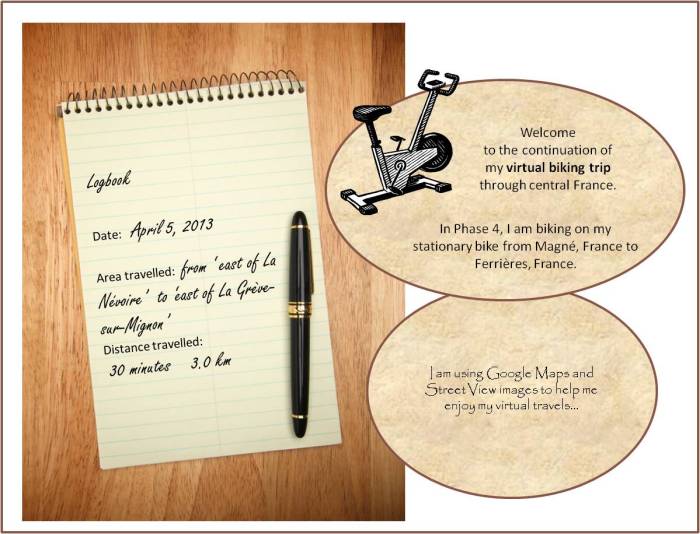 Logbook
Date: April 5, 2013
Area travelled: from 'east of La
Névoire' to 'east of La Grève-
sur-Mignon'
Distance travelled:
30 minutes 3.0 km
Welcome
to the continuation of
my virtual biking trip
through central France.
In Phase 4, I am biking on my
stationary bike from Magné, France to
Ferrières, France.
I am using Google Maps and
Street View images to help me
enjoy my virtual travels...